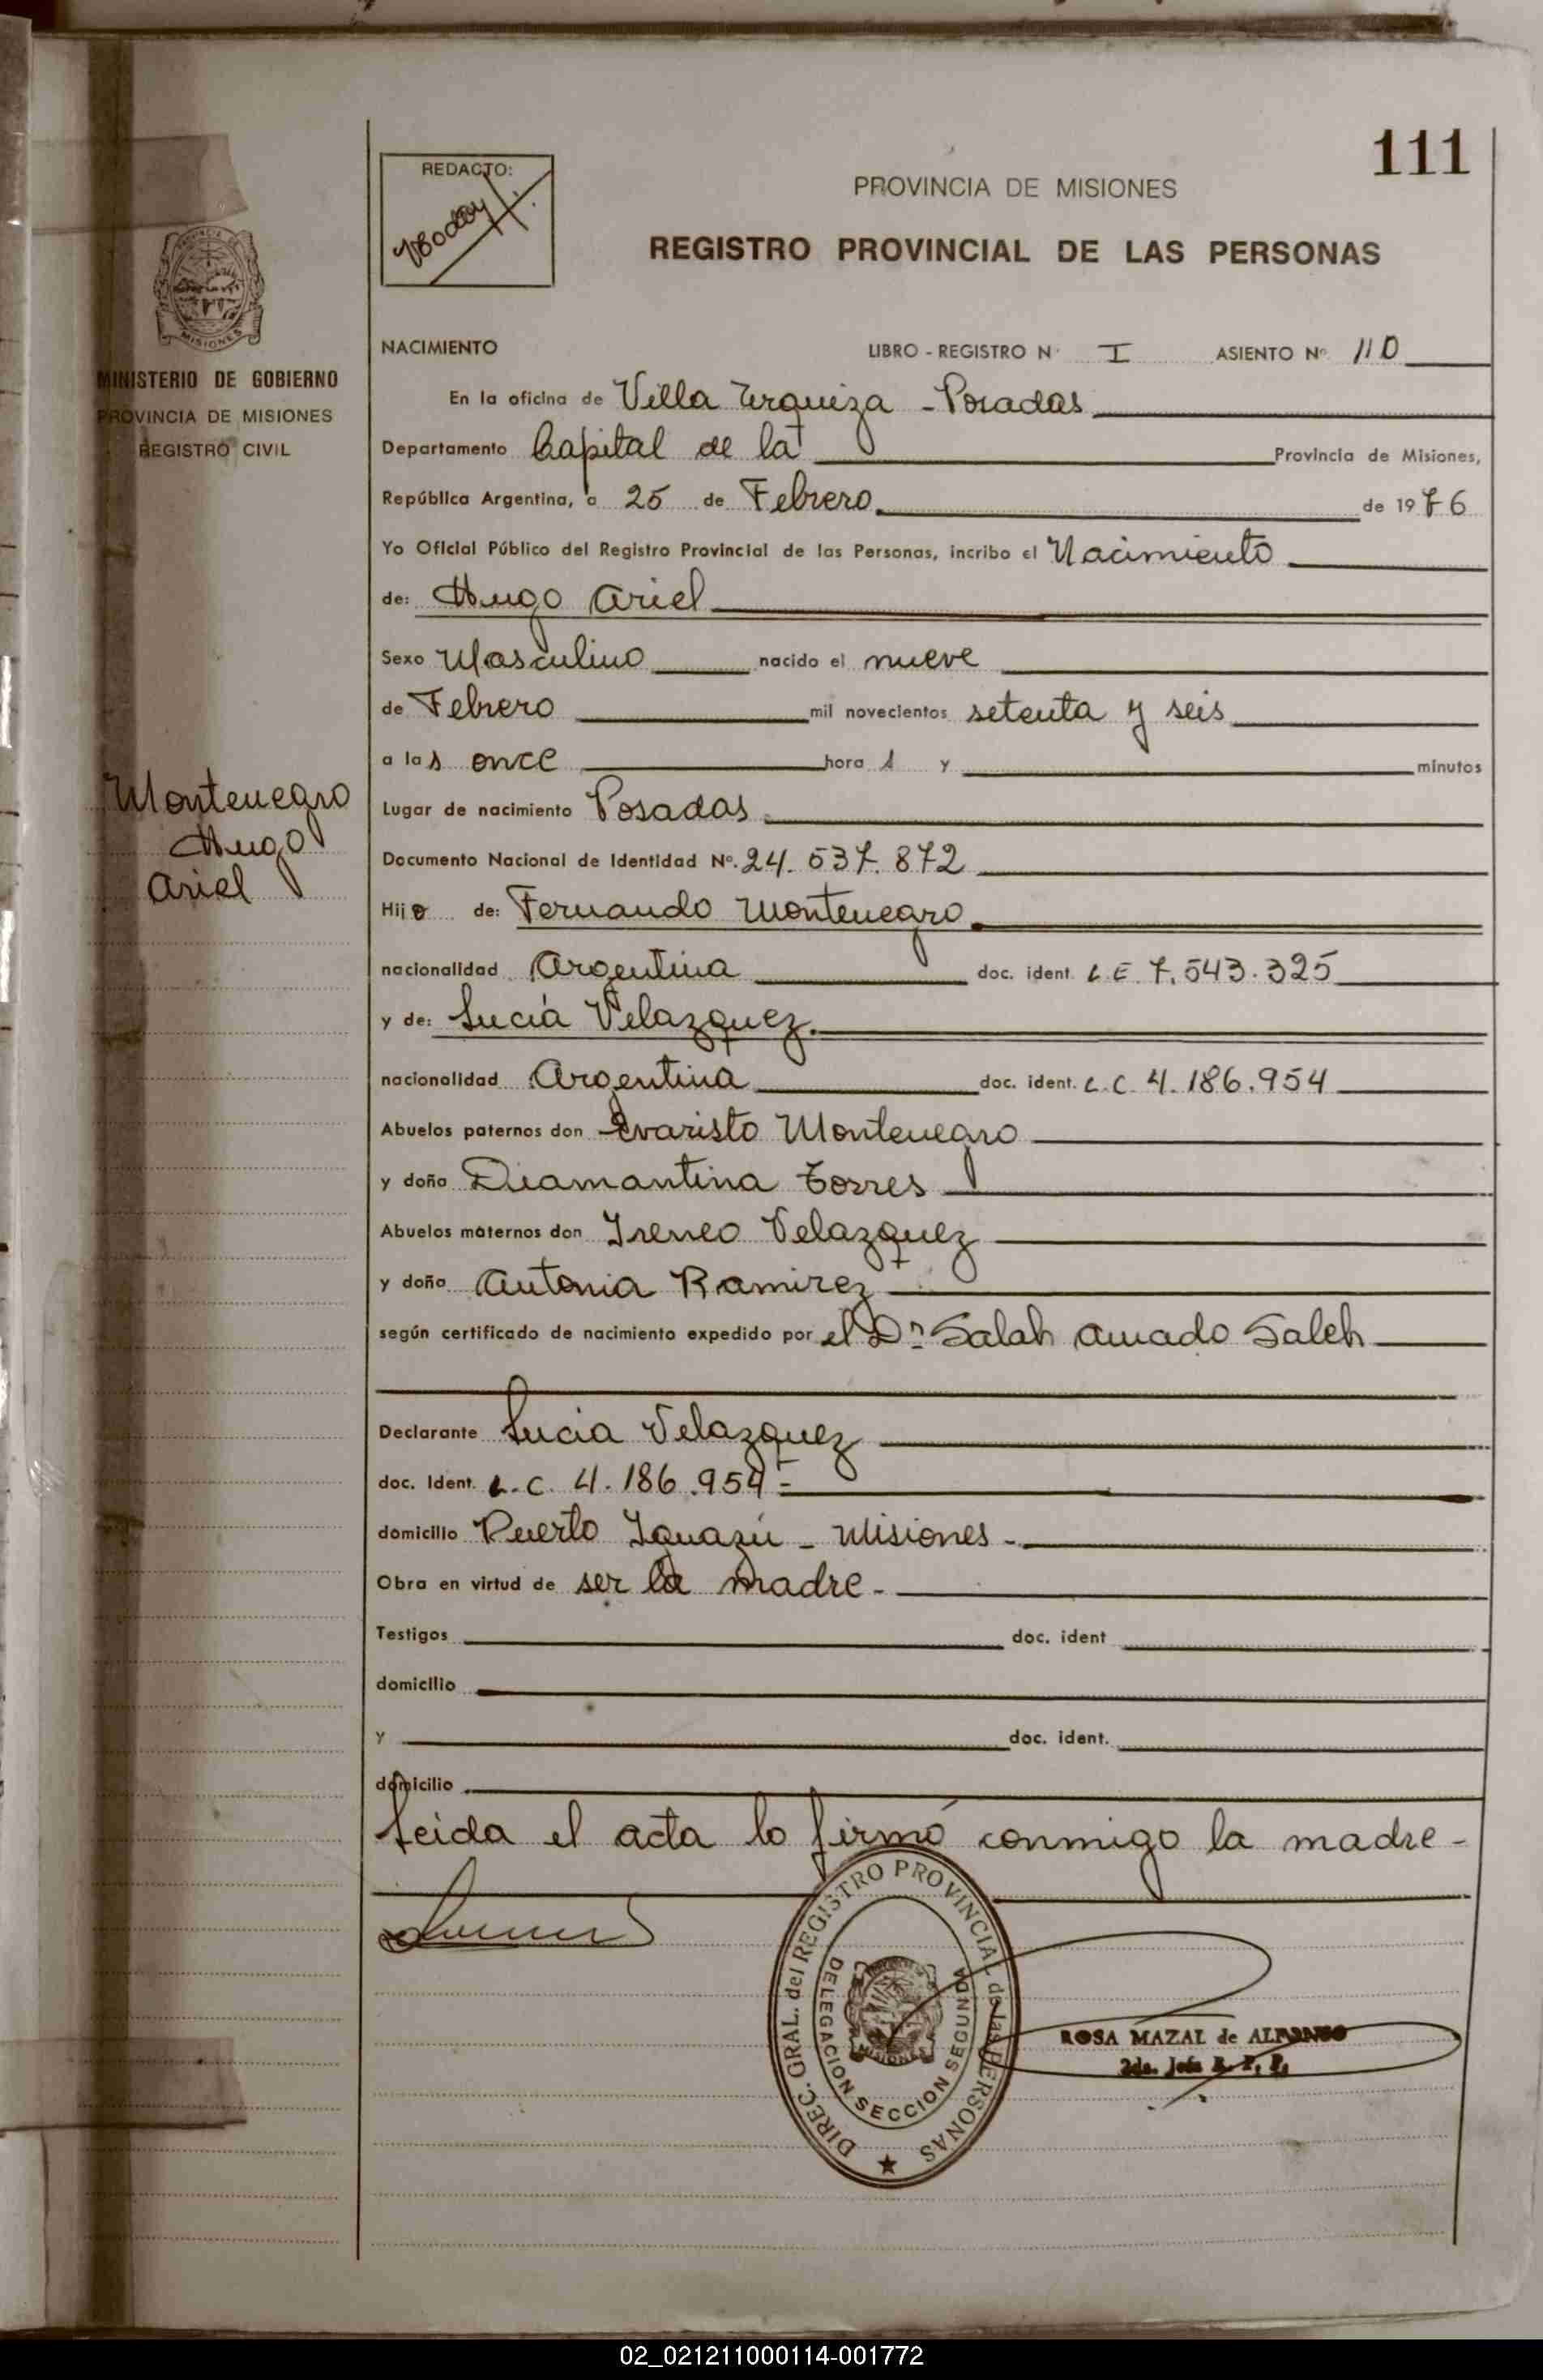 111
REDACTO:
PROVINCIA DE MISIONES
REGISTRO PROVINCIAL DE LAS PERSONAS
MISIONES
MINISTERIO DE GOBIERNO
PROVINCIA DE MISIONES
REGISTRO CIVIL
Montenegro
Hugo
Ariel
NACIMIENTO LIBRO - REGISTRO Nº I ASIENTO Nº 110
En la oficina de Villa Urquiza - Posadas
Departamento Capital de la Provincia de Misiones,
República Argentina, a 25 de Febrero de 1976
Yo Oficial Público del Registro Provincial de las Personas, incribo el Nacimiento
de: Hugo Ariel
Sexo Masculino nacido el nueve
de Febrero mil novecientos setenta y seis
a las once horas y minutos
Lugar de nacimiento Posadas
Documento Nacional de Identidad Nº. 24.537.872
Hijo de: Fernando Montenegro
nacionalidad Argentina doc. ident. L E 7.543.325
y de: Lucía Velazquez.
nacionalidad Argentina doc. ident. L.C. 4.186.954
Abuelos paternos don Evaristo Montenegro
y doña Diamantina Torres
Abuelos maternos don Ireneo Velazquez
y doña Antonia Ramirez
según certificado de nacimiento expedido por el Dr Salah Amado Saleh
Declarante Lucia Velazquez
doc. Ident. L.C. 4.186.954 =
domicilio Puerto Iguazú - Misiones -
Obra en virtud de ser la madre -
Testigos doc. ident
domicilio
y doc. ident.
domicilio
Leida el acta lo firmó conmigo la madre -
DIREC. GRAL. del REGISTRO PROVINCIAL de las PERSONAS
DELEGACION SECCION SEGUNDA
MISIONES
ROSA MAZAL de ALFONSO
2da. Jefa R. P. P.
02_021211000114-001772